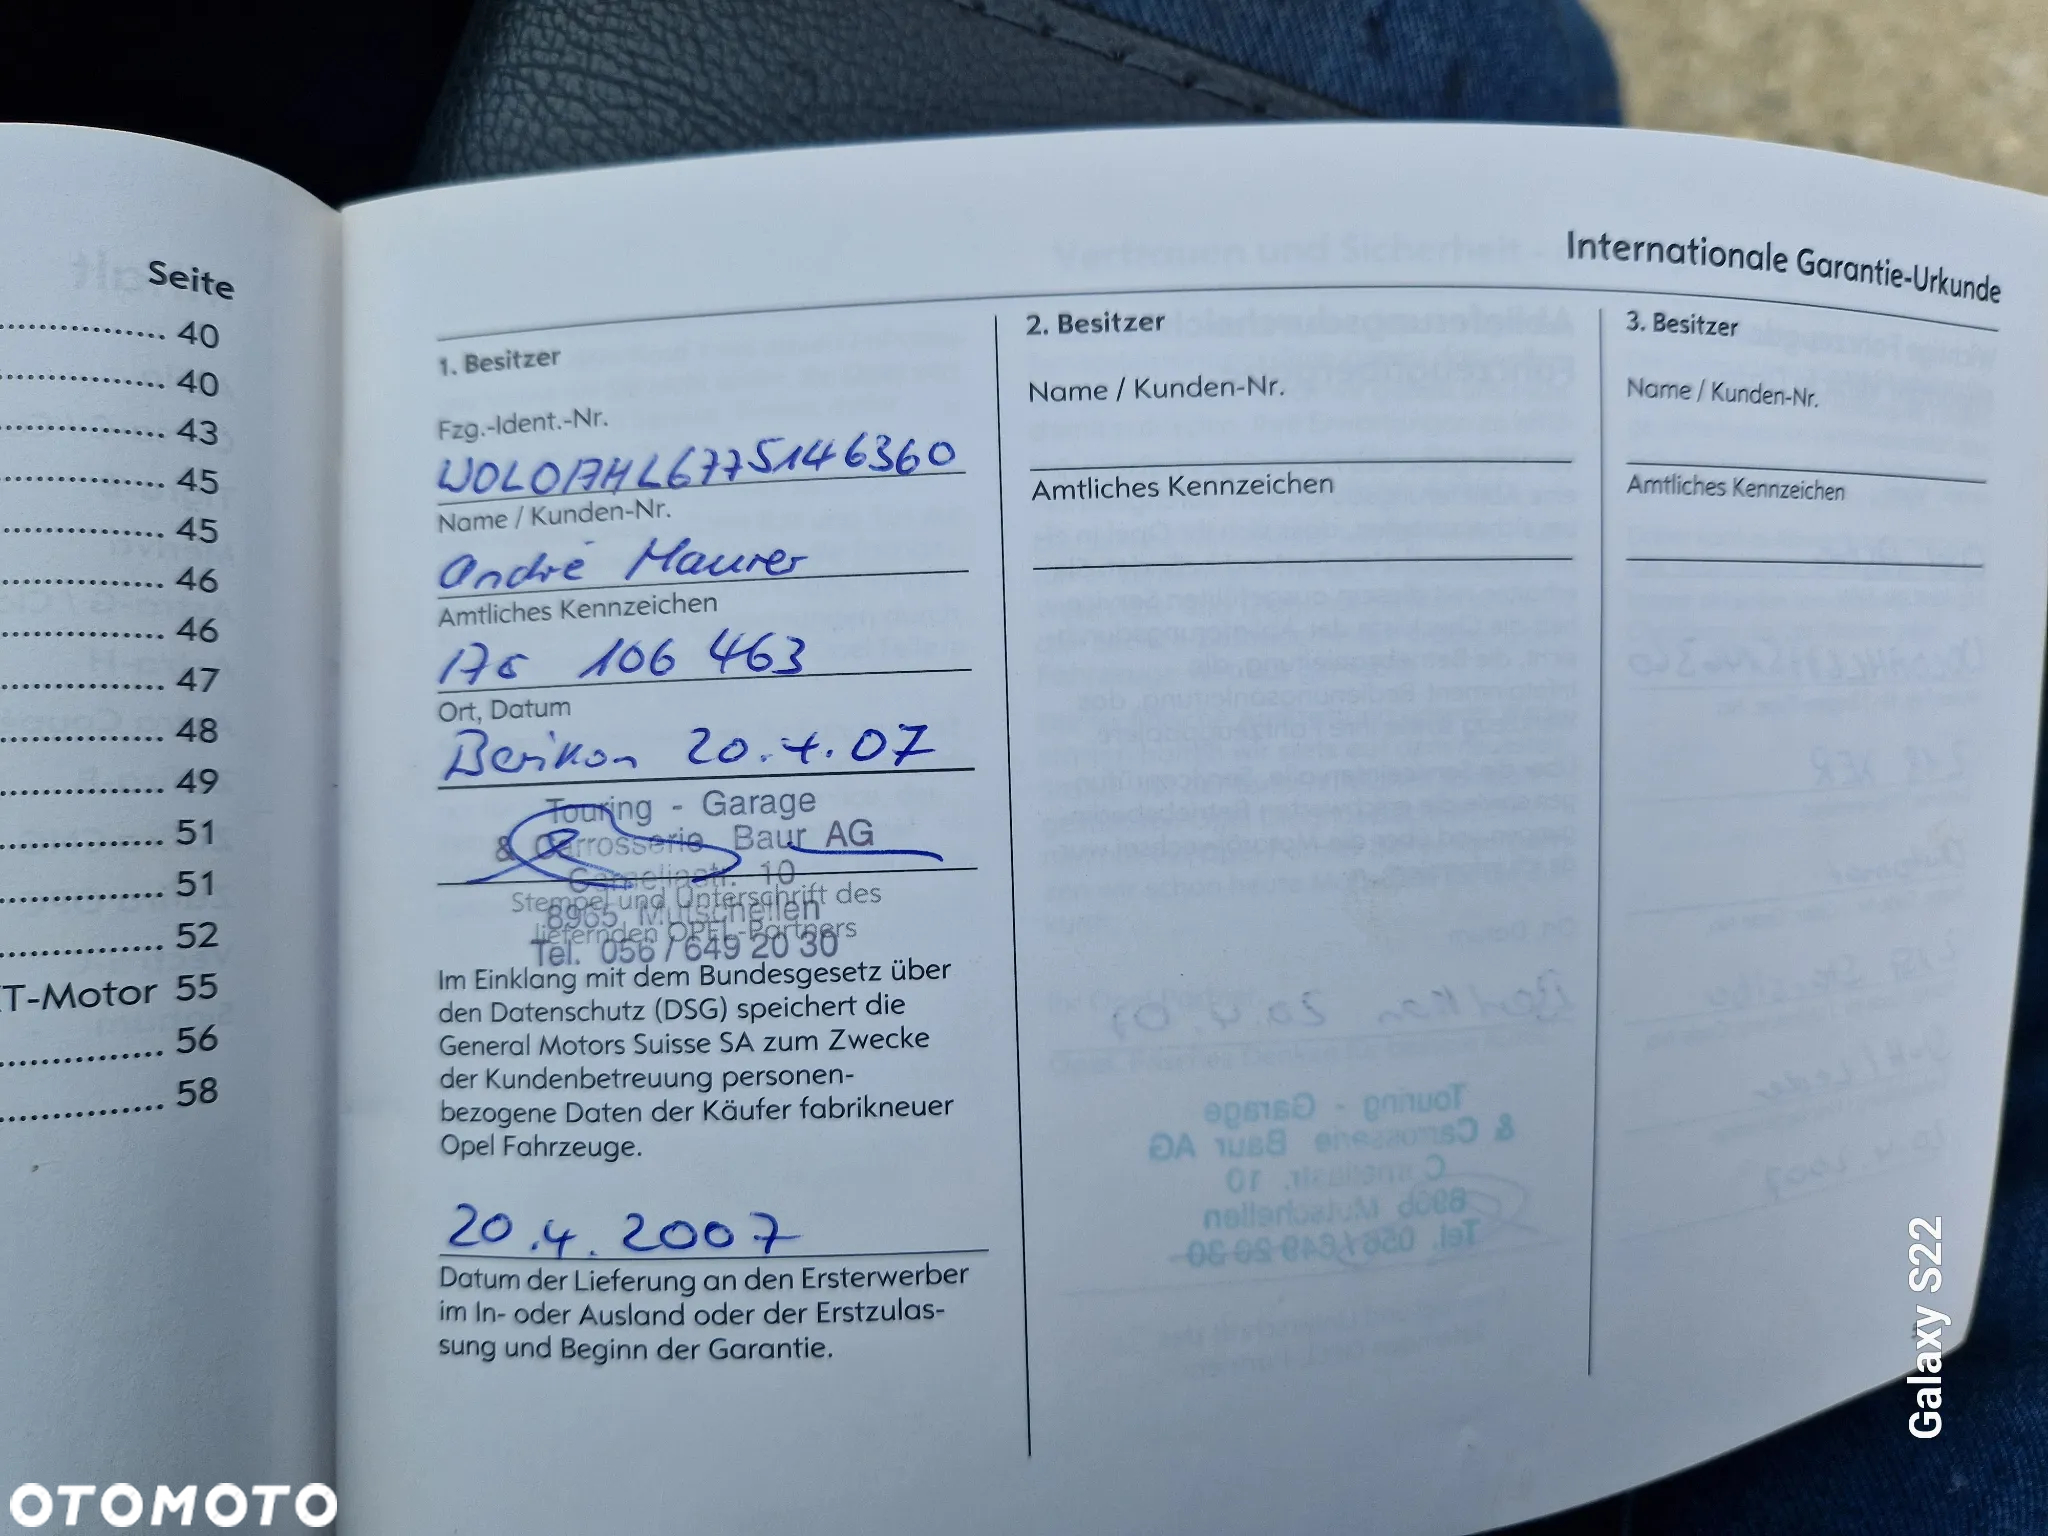 Seite
40
40
43
45
45
46
46
47
48
49
51
51
52
T-Motor 55
56
58
Internationale Garantie-Urkunde
1. Besitzer
Fzg.-Ident.-Nr.
W0L0AHL6775146360
Name / Kunden-Nr.
André Maurer
Amtliches Kennzeichen
106 463
Ort, Datum
Berikon 20.4.07
Touring - Garage
& Carrosserie Baur AG
10
Stempel und Unterschrift des
8965 Mutschellen
liefernden OPEL-Partners
Tel. 056 / 649 20 30
Im Einklang mit dem Bundesgesetz über
den Datenschutz (DSG) speichert die
General Motors Suisse SA zum Zwecke
der Kundenbetreuung personen-
bezogene Daten der Käufer fabrikneuer
Opel Fahrzeuge.
20.4.2007
Datum der Lieferung an den Ersterwerber
im In- oder Ausland oder der Erstzulas-
sung und Beginn der Garantie.
2. Besitzer
Name / Kunden-Nr.
Amtliches Kennzeichen
3. Besitzer
Name / Kunden-Nr.
Amtliches Kennzeichen
Galaxy S22
OTOMOTO